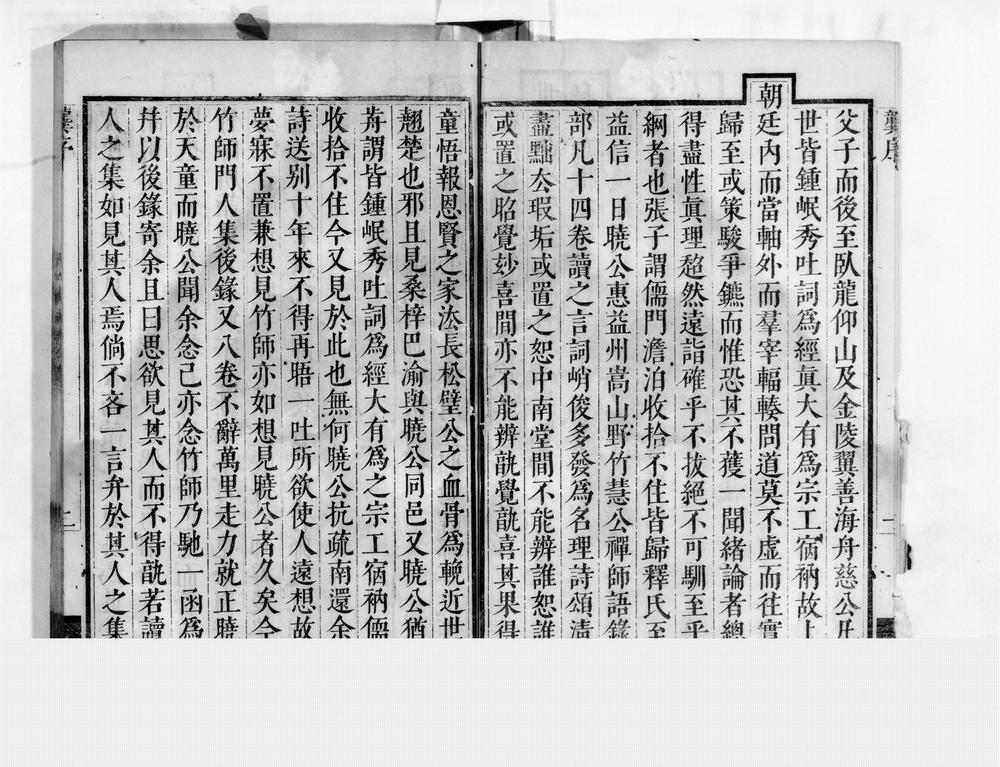 龔序
二
父子而後至臥龍仰山及金陵翼善海舟慈公
世皆鍾岷秀吐詞為經真大有為宗工宿衲故
朝廷內而當軸外而羣宰輻輳問道莫不虛而往實
歸至或策駿爭鑣而惟恐其不獲一聞緒論者總
得盡性真理超然遠詣確乎不拔絕不可馴至乎
綱者也張子謂儒門澹泊收拾不住皆歸釋氏至
益信一日曉公惠益州嵩山野竹慧公禪師語錄
部凡十四卷讀之言詞峭俊多發為名理詩頌清
盡黜厺瑕垢或置之恕中南堂間不能辨誰恕誰
或置之昭覺玅喜間亦不能辨訦覺訦喜其果得
童悟報恩賢之家法長松璧公之血骨為輓近世
翹楚也邪且見桑梓巴渝與曉公同邑又曉公猶
歬謂皆鍾岷秀吐詞為經大有為之宗工宿衲儒
收拾不住今又見於此也無何曉公抗疏南還余
詩送別十年來不得再晤一吐所欲使人遠想故
夢寐不置兼想見竹師亦如想見曉公者久矣今
竹師門人集後錄又八卷不辭萬里走力就正曉
於天童而曉公聞余念己亦念竹師乃馳一函為
幷以後錄寄余且曰思欲見其人而不得訦若讀
人之集如見其人焉倘不吝一言弁於其人之集
二